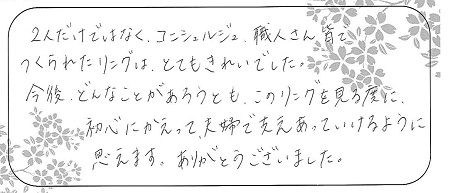 2人だけではなく、コンシェルジュ、職人さん皆で
つくられたリングは、とてもきれいでした。
今後、どんなことがあろうとも、このリングを見る度に、
初心にかえって、夫婦で支えあっていけるように
思えます。ありがとうございました。